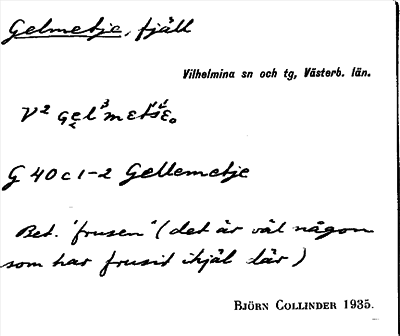 Gelmetje, fjäll
Vilhelmina sn och tg, Västerb. län.
V²
G 40 c 1-2 Gellemetje
Bet. 'frusen' (det är väl någon
som har frusit ihjäl där)
BJÖRN COLLINDER 1935.